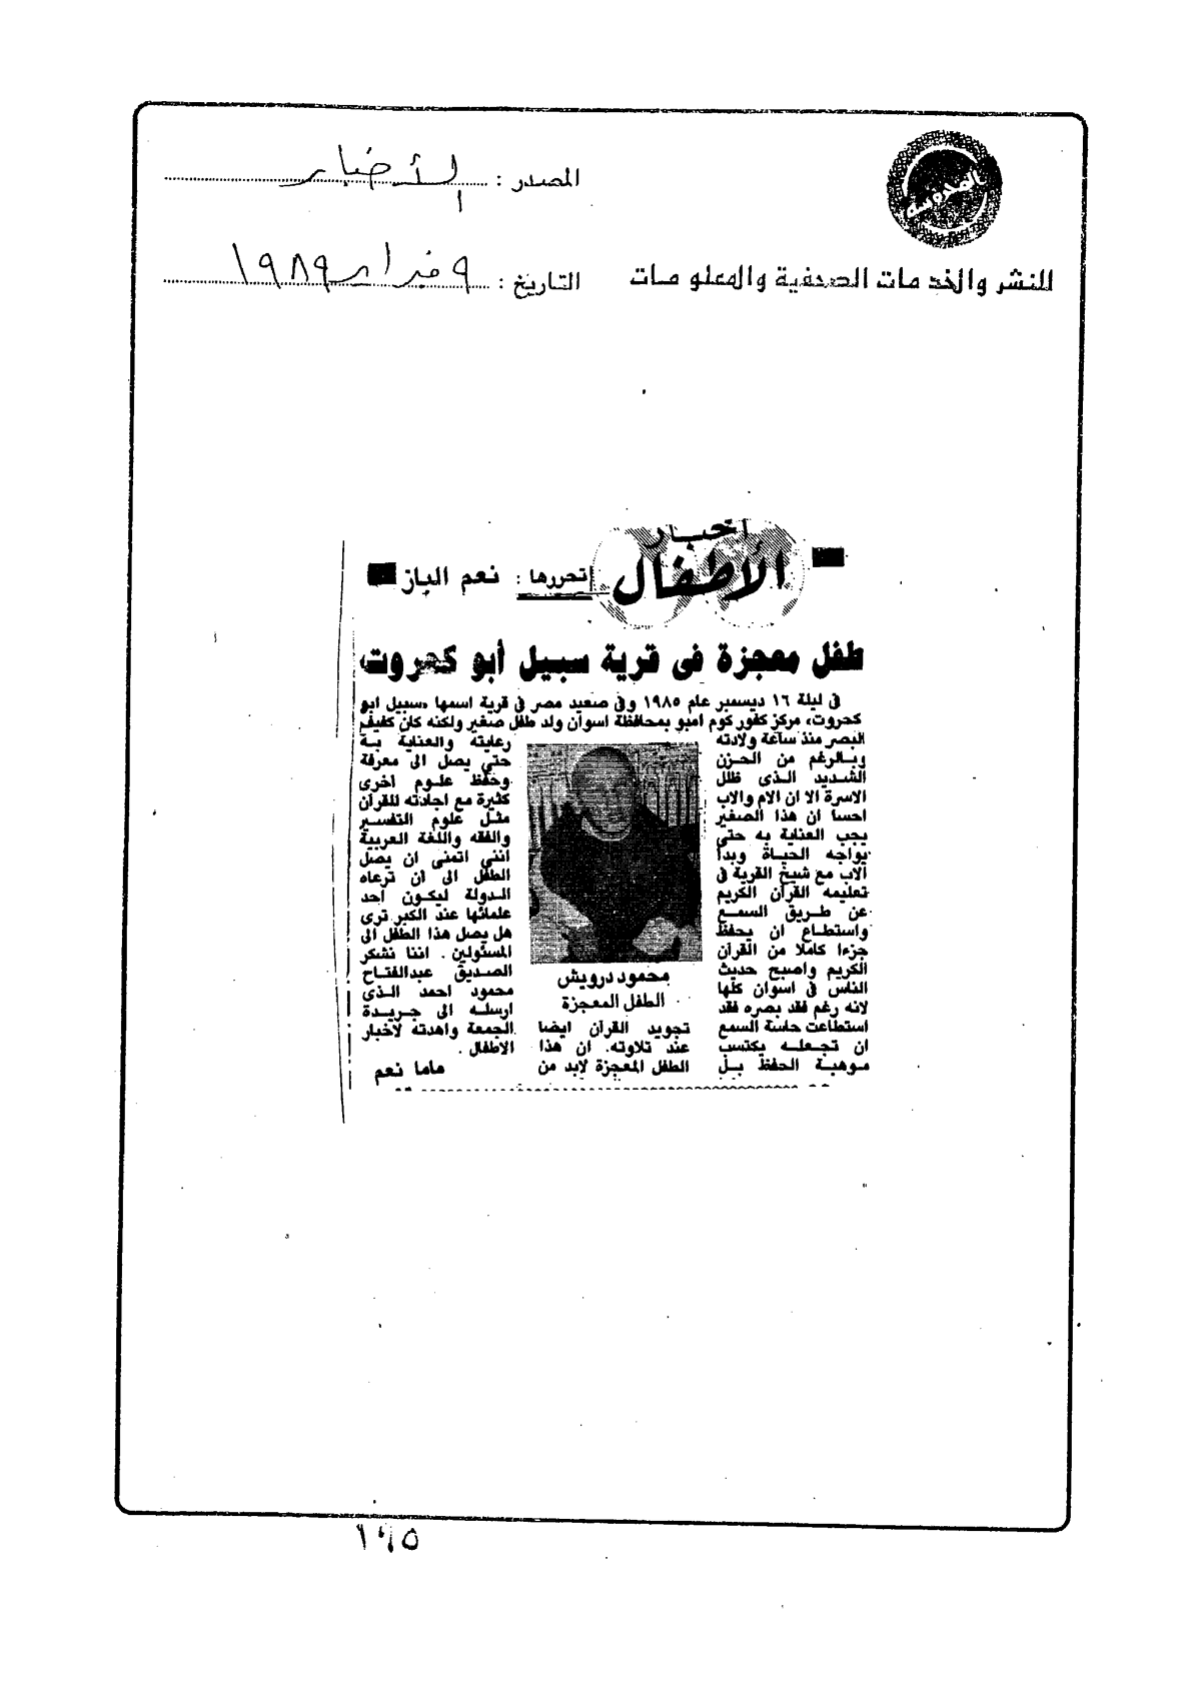 المحروسة
المصدر : الأخبار
للنشر والخدمات الصحفية والمعلومات
التاريخ : ٩ فبراير ١٩٨٩
أخبار
الأطفال
تحررها : نعم الباز
طفل معجزة فى قرية سبيل أبو كحروت
فى ليلة ١٦ ديسمبر عام ١٩٨٥ وفى صعيد مصر فى قرية اسمها «سبيل ابو
كحروت» مركز كفور كوم امبو بمحافظة اسوان ولد طفل صغير ولكنه كان كفيف
البصر منذ ساعة ولادته
وبالرغم من الحزن
الشديد الذى ظلل
الاسرة الا ان الام والاب
احسا ان هذا الصغير
يجب العناية به حتى
يواجه الحياة وبدأ
الاب مع شيخ القرية فى
تعليمه القرآن الكريم
عن طريق السمع
واستطاع ان يحفظ
جزءا كاملا من القرآن
الكريم واصبح حديث
الناس فى اسوان كلها
لانه رغم فقد بصره فقد
استطاعت حاسة السمع
ان تجعله يكتسب
موهبة الحفظ بل
محمود درويش
الطفل المعجزة
تجويد القرآن ايضا
عند تلاوته. ان هذا
الطفل المعجزة لابد من
رعايته والعناية به
حتى يصل الى معرفة
وحفظ علوم اخرى
كثيرة مع اجادته للقرآن
مثل علوم التفسير
والفقه واللغة العربية
اننى اتمنى ان يصل
الطفل الى ان ترعاه
الدولة ليكون احد
علمائها عند الكبر ترى
هل يصل هذا الطفل الى
المسئولين . اننا نشكر
الصديق عبدالفتاح
محمود احمد الذى
ارسله الى جريدة
الجمعة واهدته لاخبار
الاطفال .
ماما نعم